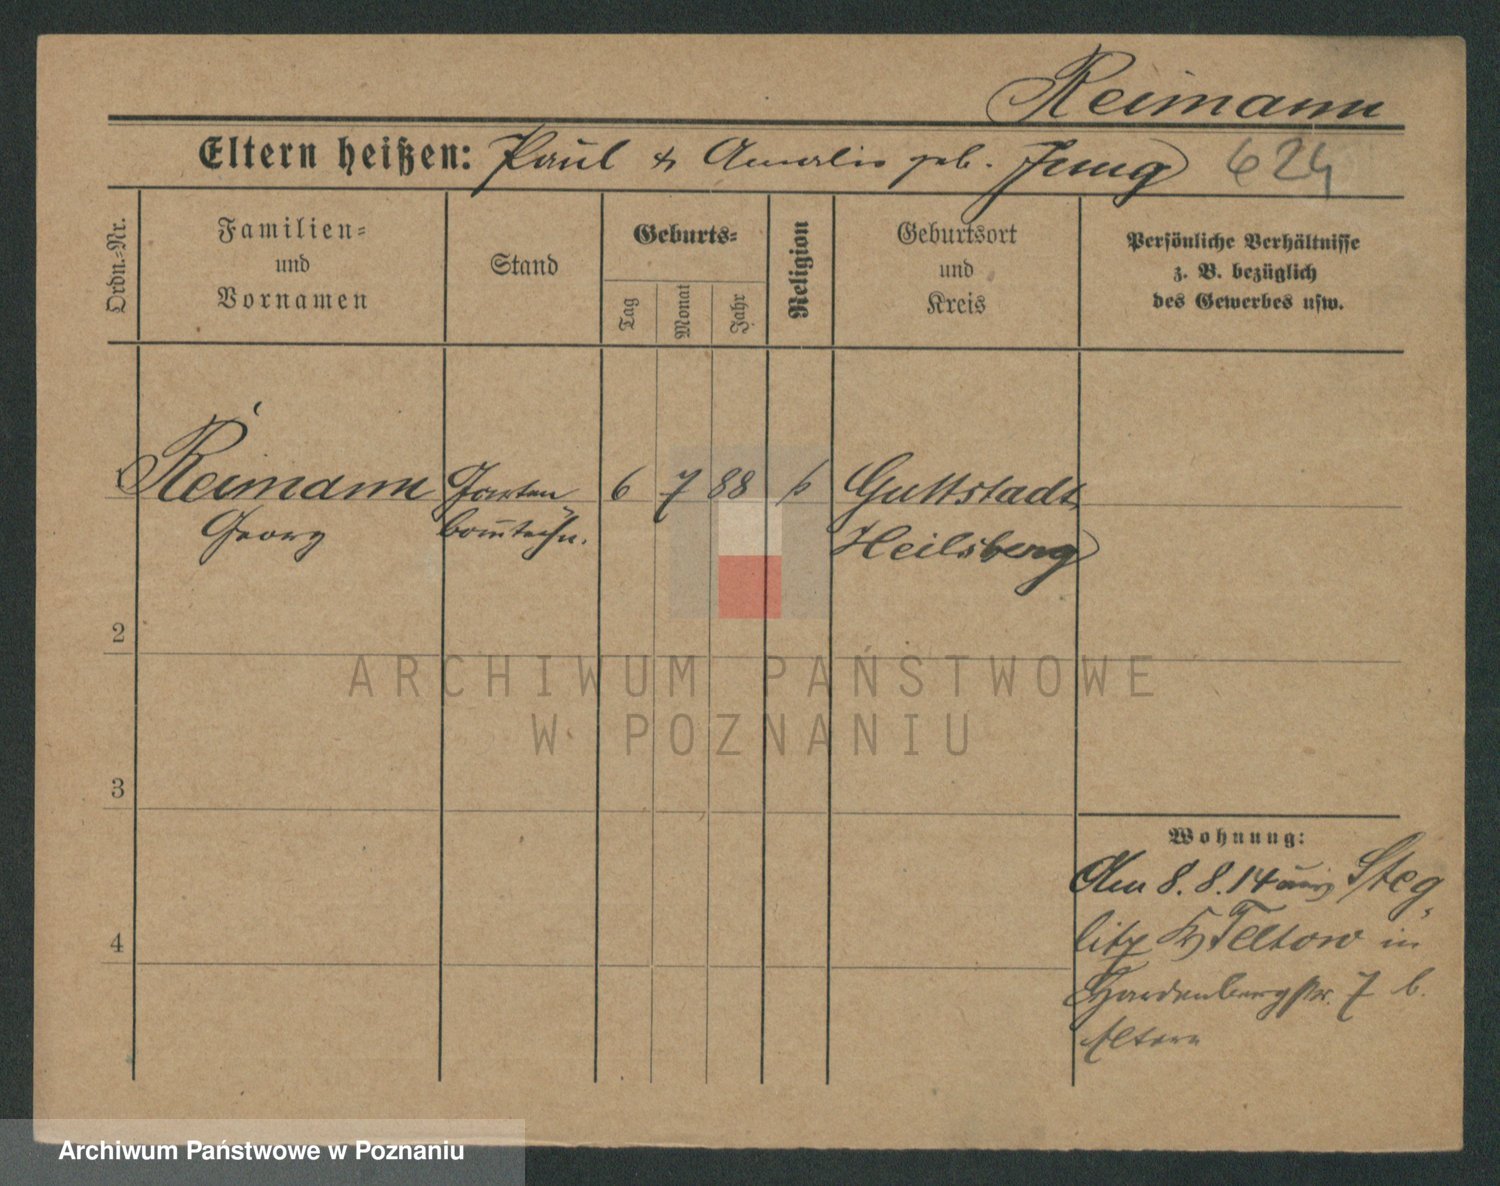 Reimann
Eltern heißen: Paul & Amalie geb. Jung 624
Ordn.-Nr.
Familien-
und
Vornamen
Stand
Geburts-
Tag
Monat
Jahr
Religion
Geburtsort
und
Kreis
Persönliche Verhältnisse
z. B. bezüglich
des Gewerbes usw.
Reimann Garten 6 7 88 Guttstadt
Georg bautechn. Heilsberg
2
ARCHIWUM PAŃSTWOWE
W POZNANIU
3
Wohnung:
Am 8.8.14 aus Steg-
litz Kr Teltow in
4
Hardenbergstr. 7 b.
Eltern
Archiwum Państwowe w Poznaniu